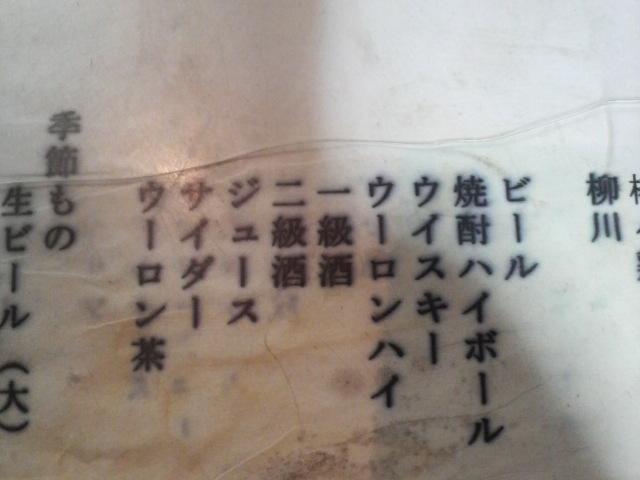 柳川
ビール
焼酎ハイボール
ウイスキー
ウーロンハイ
一級酒
二級酒
ジュース
サイダー
ウーロン茶
季節もの
生ビール（大）